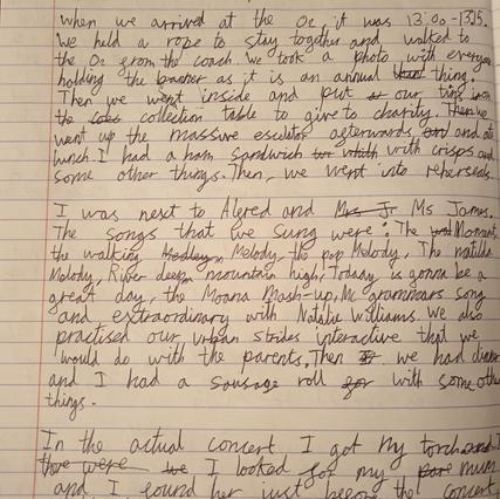 when we arrived at the O2 it was 13:00-1305.
We held a rope to stay together and walked to
the O2 from the coach. We took a photo with everyone
holding the banner as it is an annual thing.
Then we went inside and put our tins on
the collection table to give to charity. Then we
went up the massive esculator afterwards and ate
lunch. I had a ham sandwich with crisps and
some other things. Then, we went into rehersals.
I was next to Alfred and Ms James.
The songs that we sung were: The Moment,
the walking Melody, the pop Melody, The matilda
Melody, River deep mountain high, Today is gonna be a
great day, the Moana Mash-up, Mc grammars song
and extraordinary with Natalie Williams. We also
practised our urban strides interactive that we
would do with the parents. Then we had dinner
and I had a sausage roll with some other
things.
In the actual concert I got my torch and
I looked for my mum
and I found her just before the concert